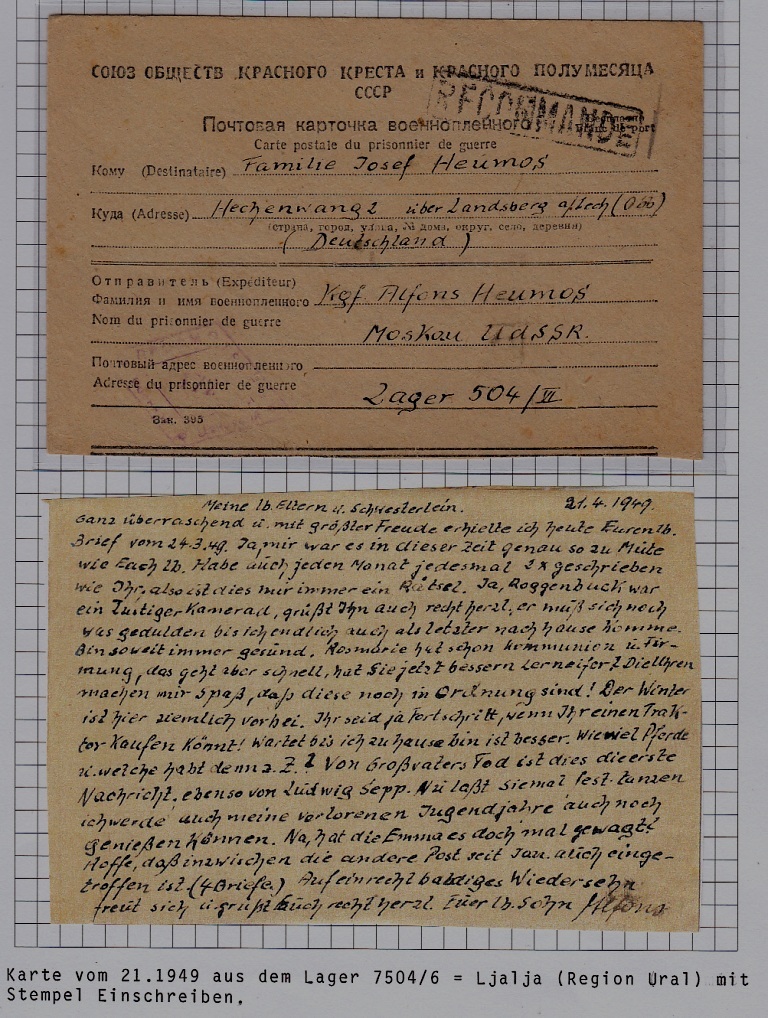 СОЮЗ ОБЩЕСТВ КРАСНОГО КРЕСТА и КРАСНОГО ПОЛУМЕСЯЦА
СССР
RECOMMANDÉ
Почтовая карточка военнопленного
Carte postale du prisonnier de guerre
Кому (Destinataire) Familie Josef Heumos
Куда (Adresse) Hechenwang 2 über Landsberg a/Lech (Obb)
(страна, город, улица, № дома, округ, село, деревня)
(Deutschland)
Отправитель (Expéditeur)
Фамилия и имя военнопленного Kgf. Alfons Heumos
Nom du prisonnier de guerre
Moskau UdSSR.
Почтовый адрес военнопленного
Adresse du prisonnier de guerre
Lager 504/VI
Зак. 395
Meine lb. Eltern u. Schwesterlein. 21.4.1949.
Ganz überraschend u. mit größter Freude erhielte ich heute Euren lb.
Brief vom 24.3.49. Ja, mir war es in dieser Zeit genau so zu Mute
wie Euch lb. Habe auch jeden Monat jedesmal 2x geschrieben
wie Ihr, also ist dies mir immer ein Rätsel. Ja, Roggenbuck war
ein lustiger Kamerad, grüßt Ihn auch recht herzl. er muß sich noch
was gedulden bis ich endlich auch als letzter nach hause komme.
Bin soweit immer gesund. Rosmarie hat schon Kommunion u. Fir-
mung, das geht aber schnell, hat Sie jetzt bessern Lerneifer? Die Uhren
machen mir Spaß, daß diese noch in Ordnung sind! Der Winter
ist hier ziemlich vorbei. Ihr seid ja Fortschritt, wenn Ihr einen Trak-
tor kaufen könnt! Wartet bis ich zu hause bin ist besser. Wieviel Pferde
u. welche habt denn z. Z.? Von Großvaters Tod ist dies die erste
Nachricht, ebenso von Ludwig Sepp. Nu laßt Sie mal fest tanzen
ich werde auch meine verlorenen Jugendjahre auch noch
genießen können. Na, hat die Emma es doch mal gewagt!
Hoffe, daß inzwischen die andere Post seit Jan. auch einge-
troffen ist (4 Briefe.) Auf ein recht baldiges Wiedersehn
freut sich u. grüßt Euch recht herzl. Euer lb. Sohn Alfons
Karte vom 21.1949 aus dem Lager 7504/6 = Ljalja (Region Ural) mit
Stempel Einschreiben.